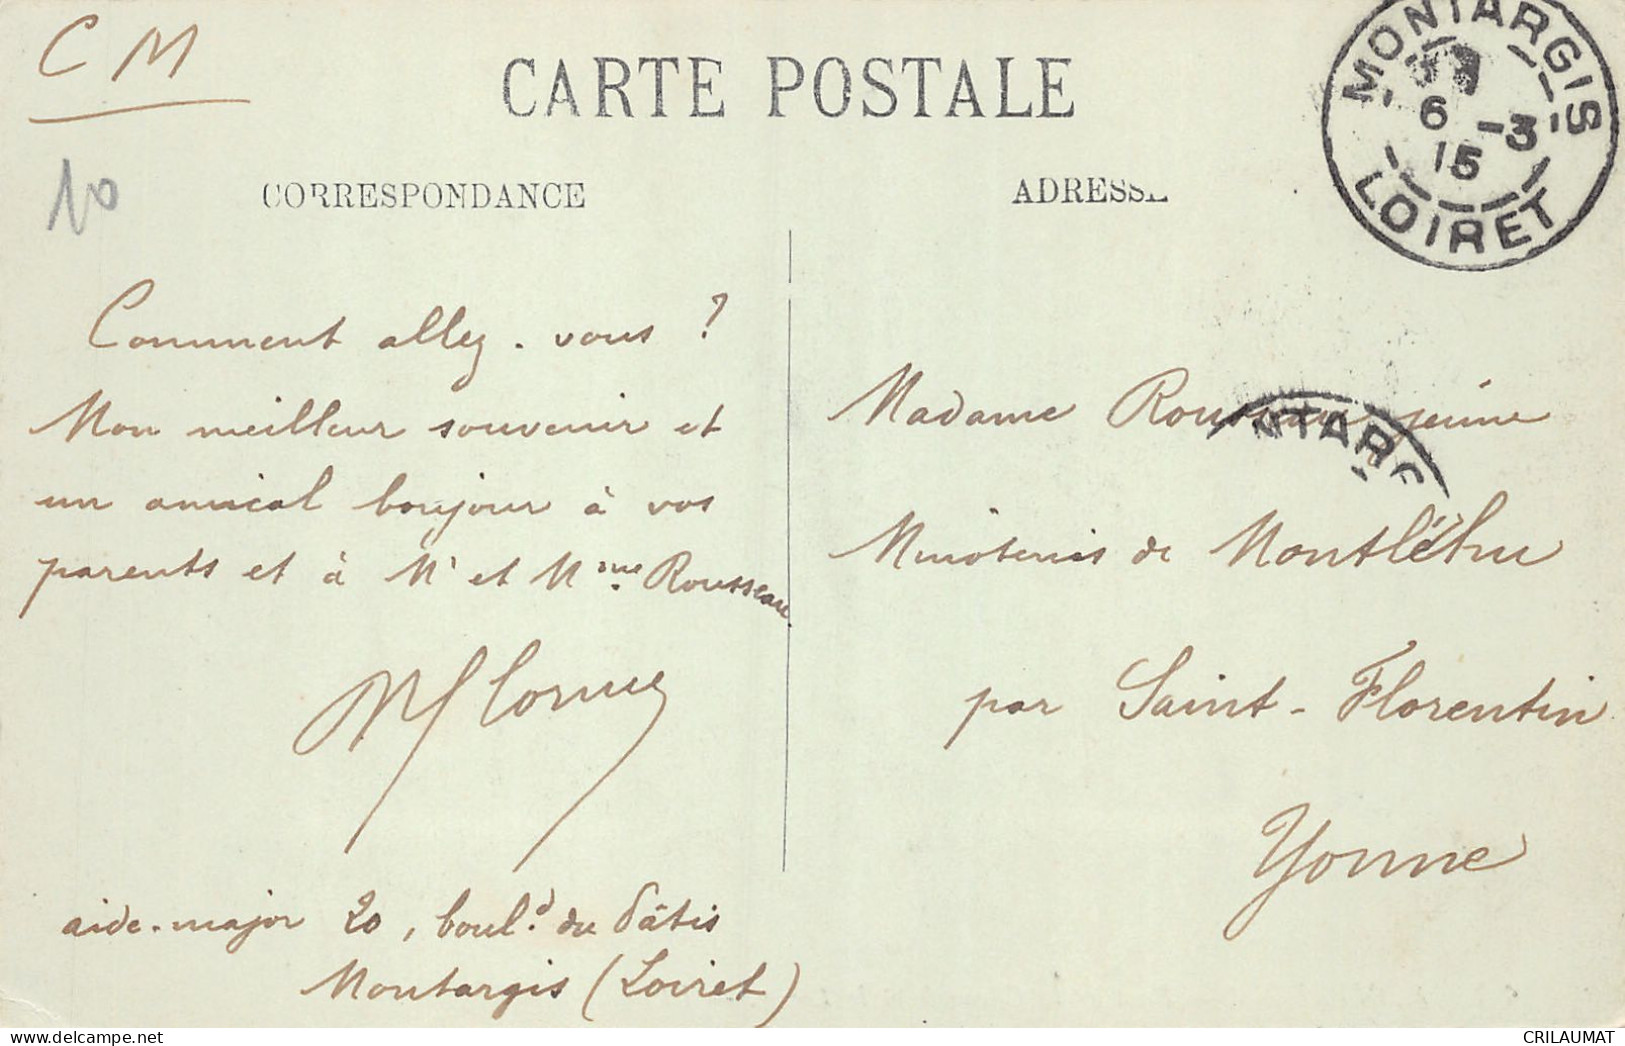 C M
CARTE POSTALE
MONTARGIS
6 -3
15
LOIRET
10
CORRESPONDANCE
ADRESSE
Comment allez-vous ?
Mon meilleur souvenir et
un amical bonjour à vos
parents et à Mr et Mme Rousseau.
aide-major 20, boul.d du Pâtis
Montargis (Loiret)
NTARG
Madame Rousseau jeune
Minoteries de Montléhu
par Saint-Florentin
Yonne
CRILAUMAT